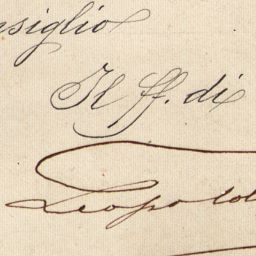 nsiglio
Il ff. di
Leopold